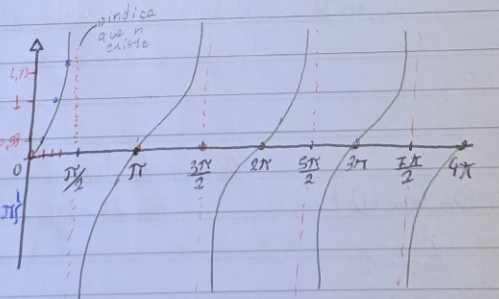 indica
que ñ
existe
1,73
1
0,58
0 π/2 π 3π/2 2π 5π/2 3π 7π/2 4π